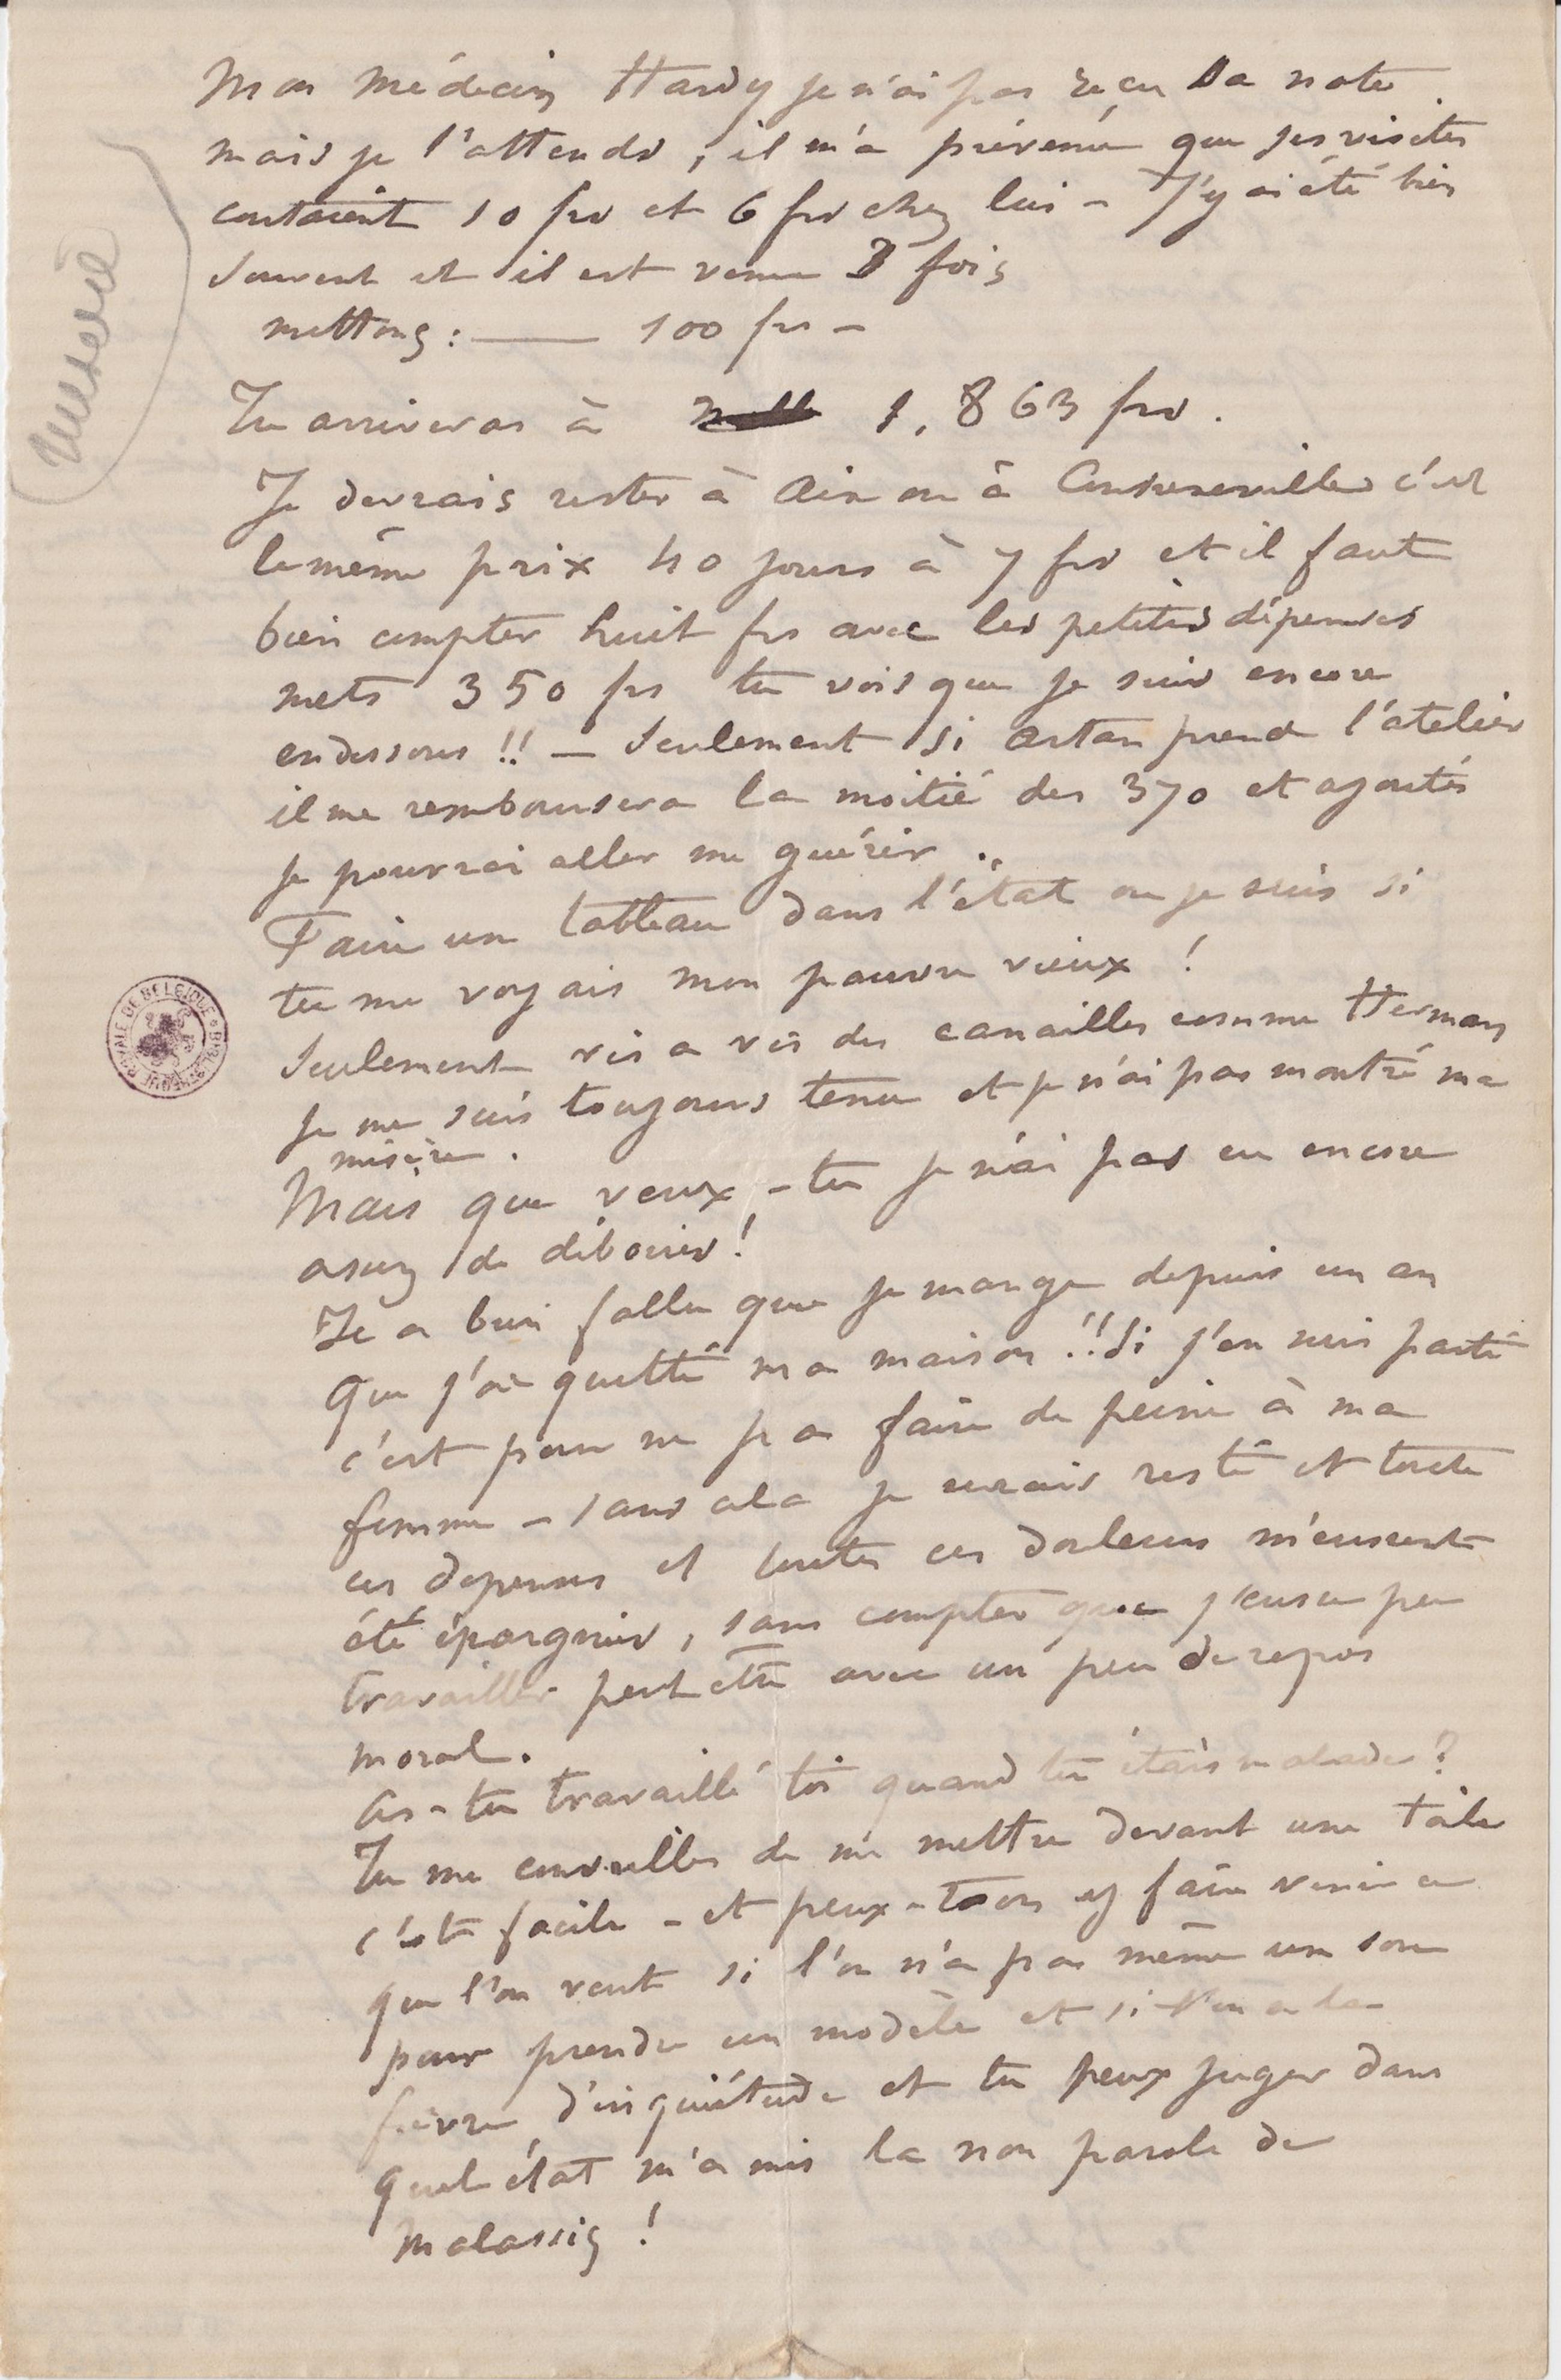 Mon médecin Hardy je n'ai pas reçu sa note
mais je l'attends, il m'a prévenu que ses visites
coutaient 10 frs et 6 frs chez lui – J'y ai été bien
souvent et il est venu 3 fois
mettons : —— 100 frs –
Tu arriveras à 1,863 frs.
Je devrais rester à Aix ou à Contrexeville c'est
le même prix 40 jours à 7 frs et il faut
bien compter huit frs avec les petites dépenses
mets 350 frs tu vois que je suis encore
en dessous !! – Seulement si Artan prend l'atelier
il me remboursera la moitié des 370 et ajoutés
je pourrai aller me guérir.
Faire un tableau dans l'état ou je suis si
tu me voyais mon pauvre vieux !
Seulement vis a vis des canailles comme Herman
je me suis toujours tenu et je n'ai pas montré ma
misère.
Mais que veux-tu je n'ai pas eu encore
assez de déboires !
Il a bien fallu que je mange depuis un an
que j'ai quitté ma maison !! Si j'en suis parti
c'est pour ne pas faire de peine à ma
femme – sans cela je serais resté et toute
ces depenses et toutes ces douleurs m'eussent
été épargnées, sans compter que j'eusse peu
travailler peut etre avec un peu de repos
moral.
As-tu travaillé toi quand tu étais malade ?
Tu me conseilles de me mettre devant une toile
c'est facile – et peux-t-on y faire venir ce
que l'on veut si l'on n'a pas même un sou
pour prendre un modèle et si l'on a la
fièvre d'inquiétude et tu peux juger dans
quel état m'a mis la non parole de
Malassis !
BIBLIOTHEQUE ROYALE DE BELGIQUE